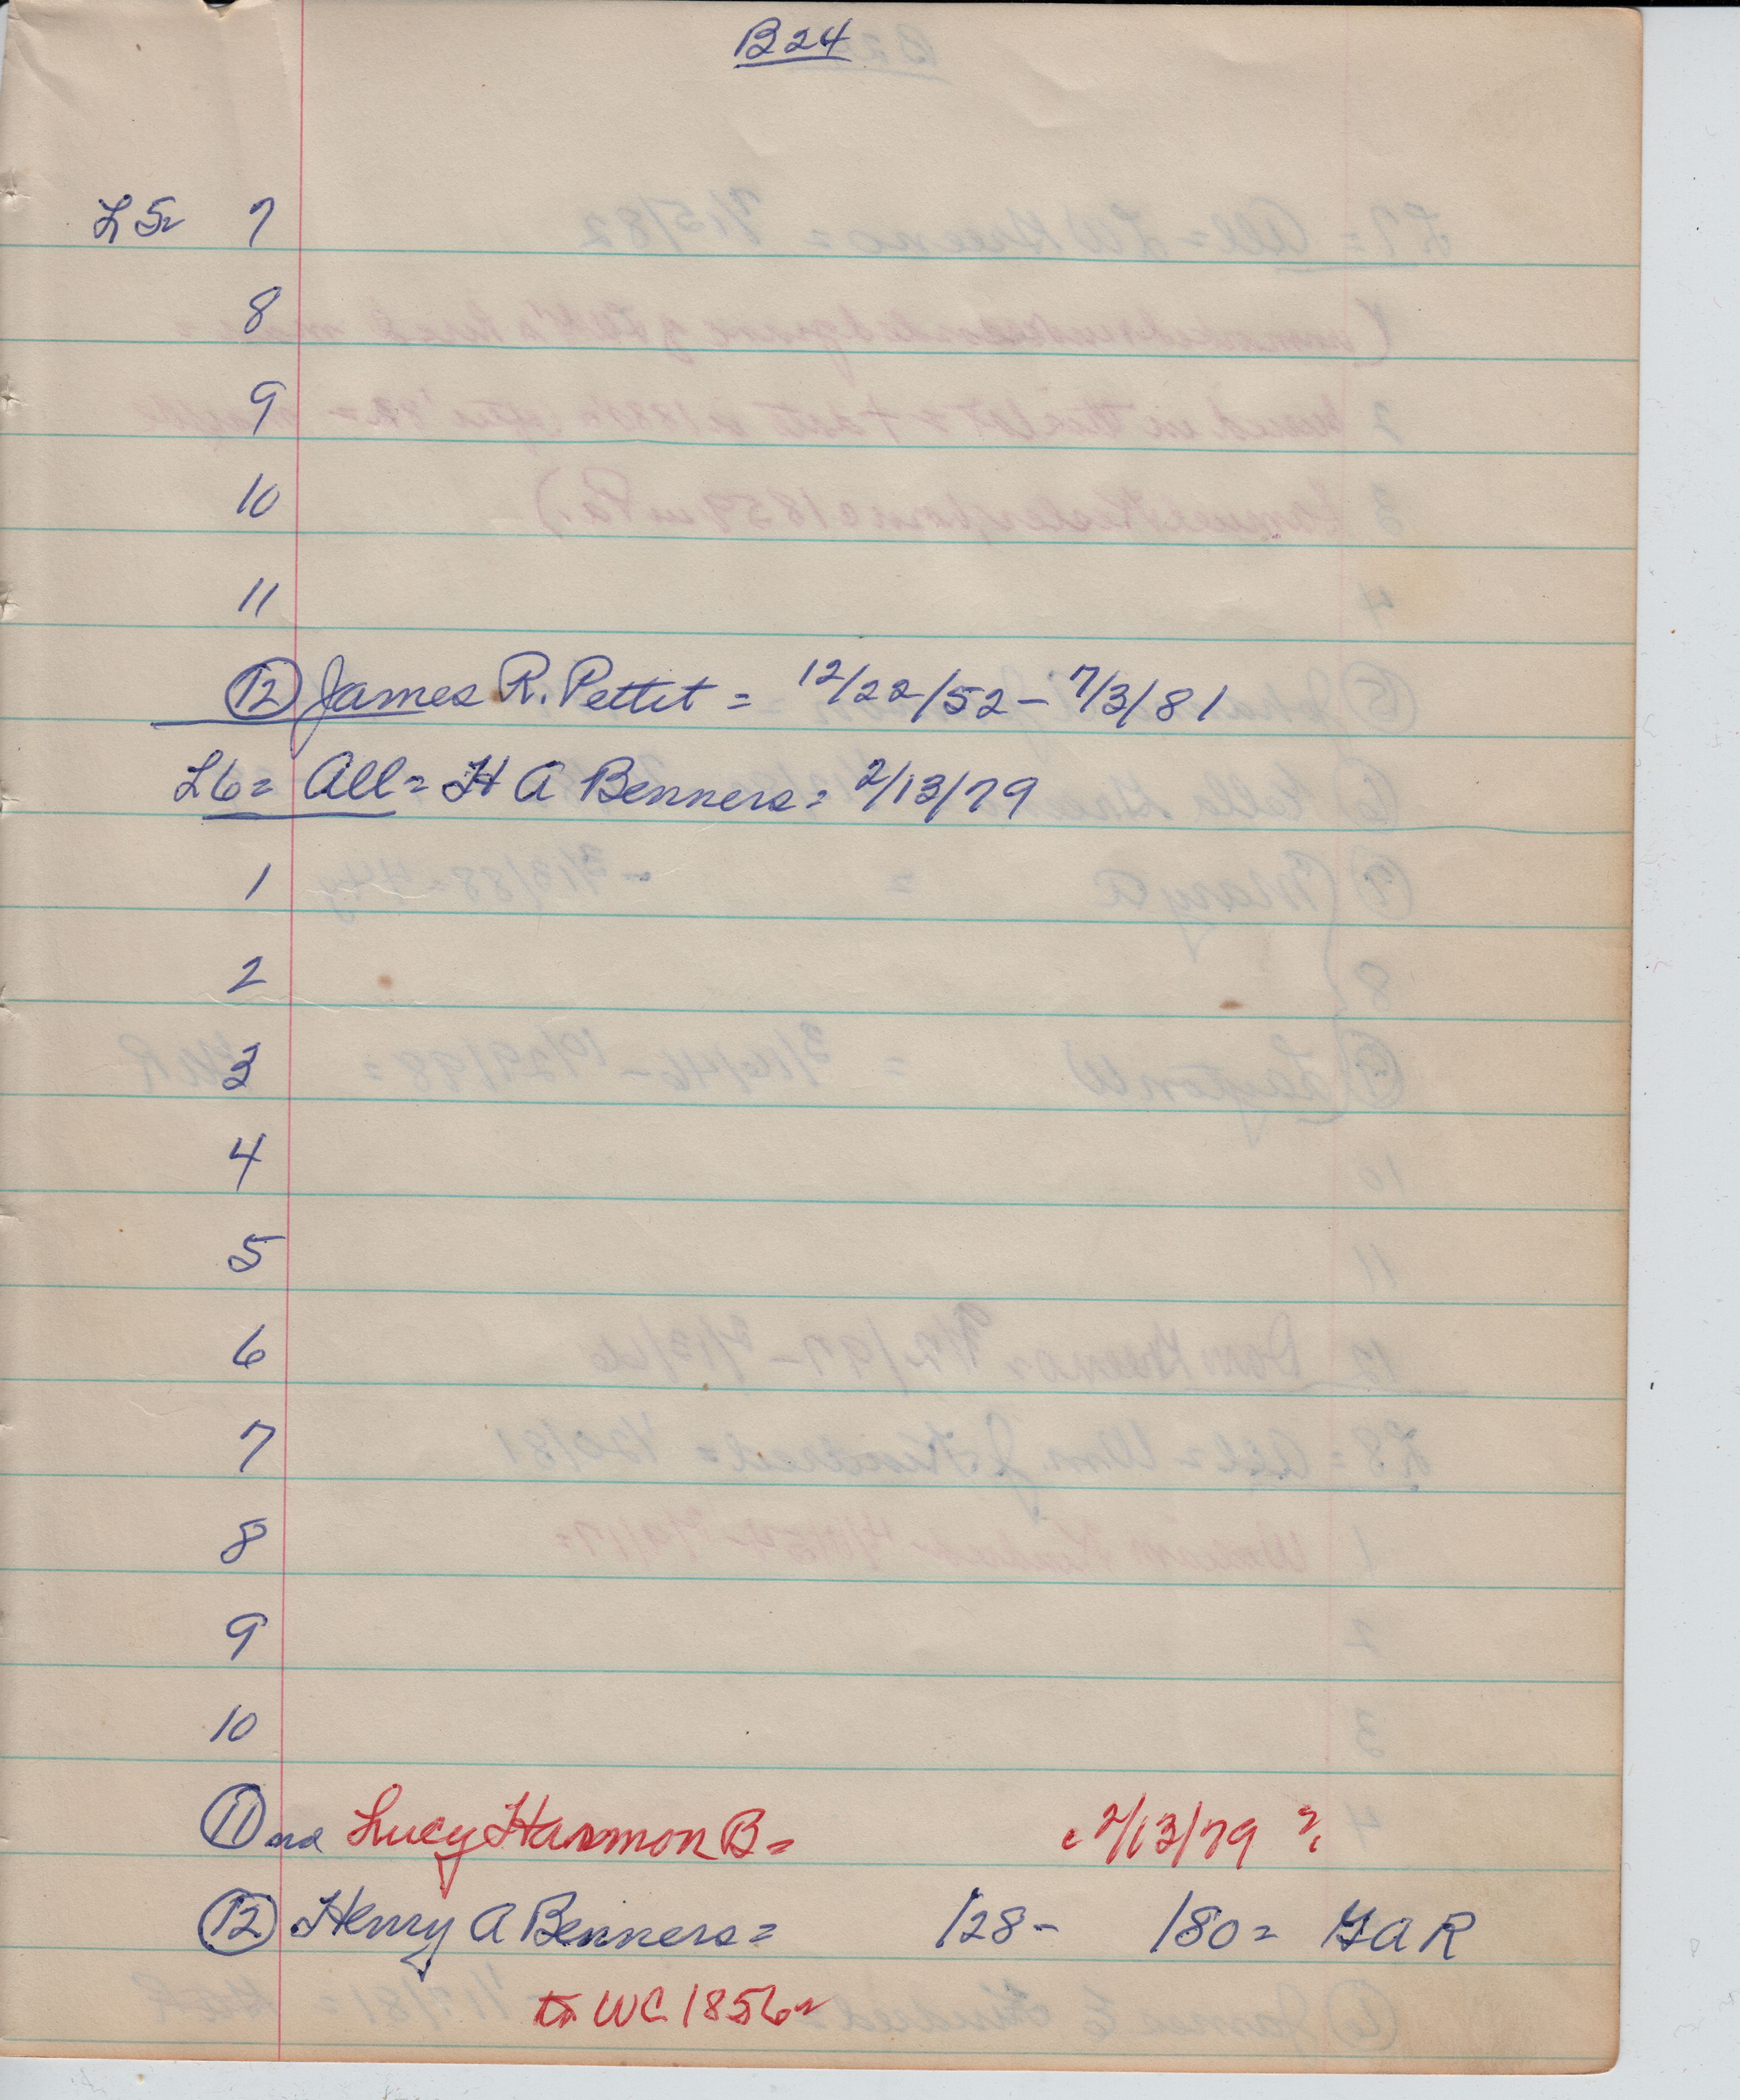 B24
L5= 7
8
9
10
11
12 James R. Pettit = 12/22/52 - 7/3/81
L6= All= H A Benners= 2/13/79
1
2
3
4
5
6
7
8
9
10
11 Lucy Harmon B= c 2/13/79 ?
12 Henry A Benners= /28- /80= GAR
WC 1856=